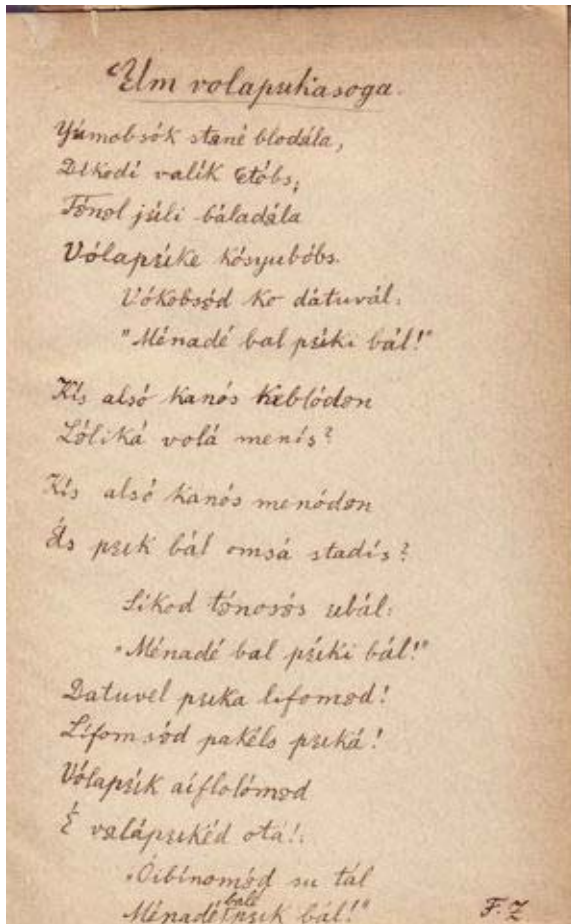 Um volapukasoga.
Yúmobsók stané blodála,
Dikodi valik etóbs,
Tónol júli báladála
Vólapúke kósyubóbs.
Vókobsód ko dátuvál:
"Ménadé bal púki bál!"
Kis alsó kanós keblódon
Lólíká volá menis?
Kis alsó kanós menódon
Ás puk bál omsá stadis?
Sikod tónosós ubál:
"Ménadé bal púki bál!"
Datuvel puka lifomod!
Lifomsód pakéls puká!
Vólapúk aiflolómod
É valápukéd otá!:
"Óibinomód su tál
Ménadé balé puk bál!"
F. Z